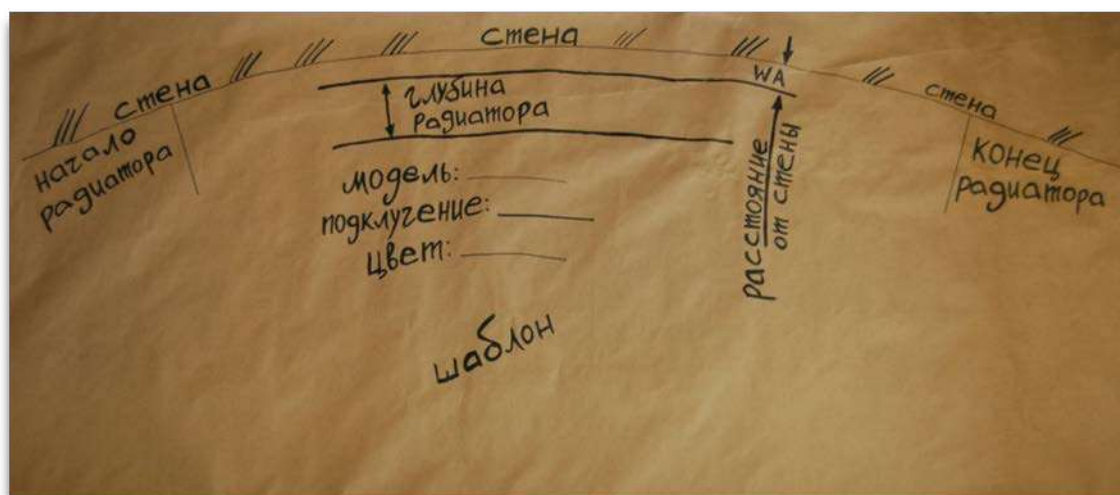 стена
стена
стена
WA
глубина
радиатора
начало
радиатора
расстояние
от стены
конец
радиатора
модель:
подключение:
цвет:
шаблон